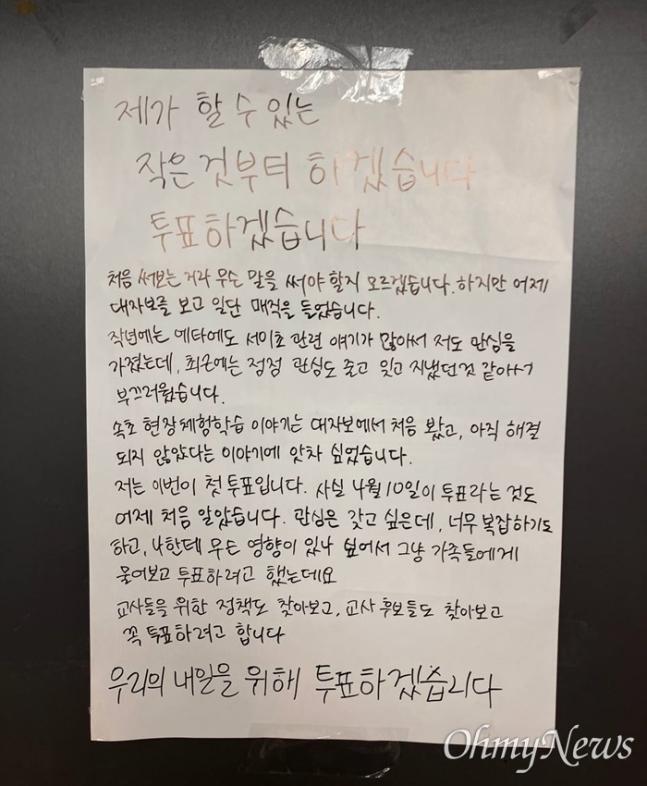 제가 할 수 있는
작은 것부터 하겠습니다
투표하겠습니다
처음 써보는 거라 무슨 말을 써야 할지 모르겠습니다. 하지만 어제
대자보를 보고 일단 매직을 들었습니다.
작년에는 에타에도 서이초 관련 얘기가 많아서 저도 관심을
가졌는데, 최근에는 점점 관심도 줄고 잊고 지냈던것 같아서
부끄러웠습니다.
속초 현장체험학습 이야기는 대자보에서 처음 봤고, 아직 해결
되지 않았다는 이야기에 앗차 싶었습니다.
저는 이번이 첫 투표입니다. 사실 4월 10일이 투표라는 것도
어제 처음 알았습니다. 관심은 갖고 싶은데, 너무 복잡하기도
하고, 나한테 무슨 영향이 있나 싶어서 그냥 가족들에게
물어보고 투표하려고 했는데요
교사들을 위한 정책도 찾아보고, 교사 후보들도 찾아보고
꼭 투표하려고 합니다
우리의 내일을 위해 투표하겠습니다
OhmyNews